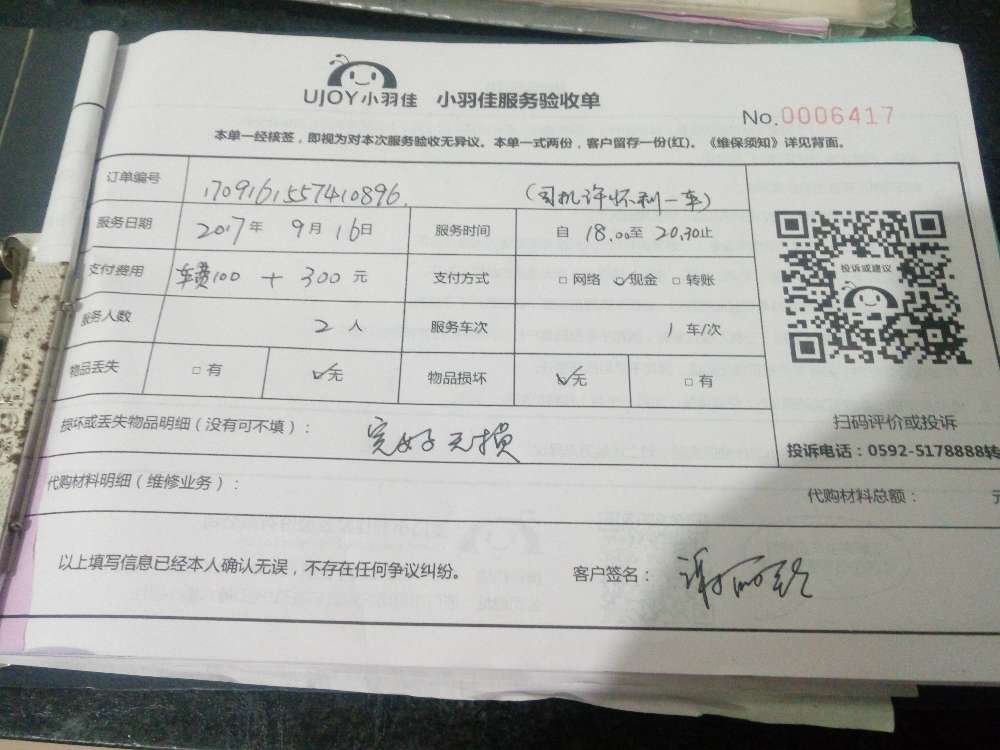 UJOY小羽佳 小羽佳服务验收单
No.0006417
本单一经核签，即视为对本次服务验收无异议。本单一式两份，客户留存一份(红)。《维保须知》详见背面。
订单编号 1709161557410896 (司机许怀利一车)
服务日期 2017年 9月 16日 服务时间 自 18.00至 20.30止
支付费用 车费100 + 300元 支付方式 □网络 ☑现金 □转账
服务人数 2人 服务车次 1车/次
物品丢失 □有 ☑无 物品损坏 ☑无 □有
投诉或建议
损坏或丢失物品明细（没有可不填）： 完好无损
扫码评价或投诉
投诉电话：0592-5178888转
代购材料明细（维修业务）：
代购材料总额： 元
以上填写信息已经本人确认无误，不存在任何争议纠纷。 客户签名：